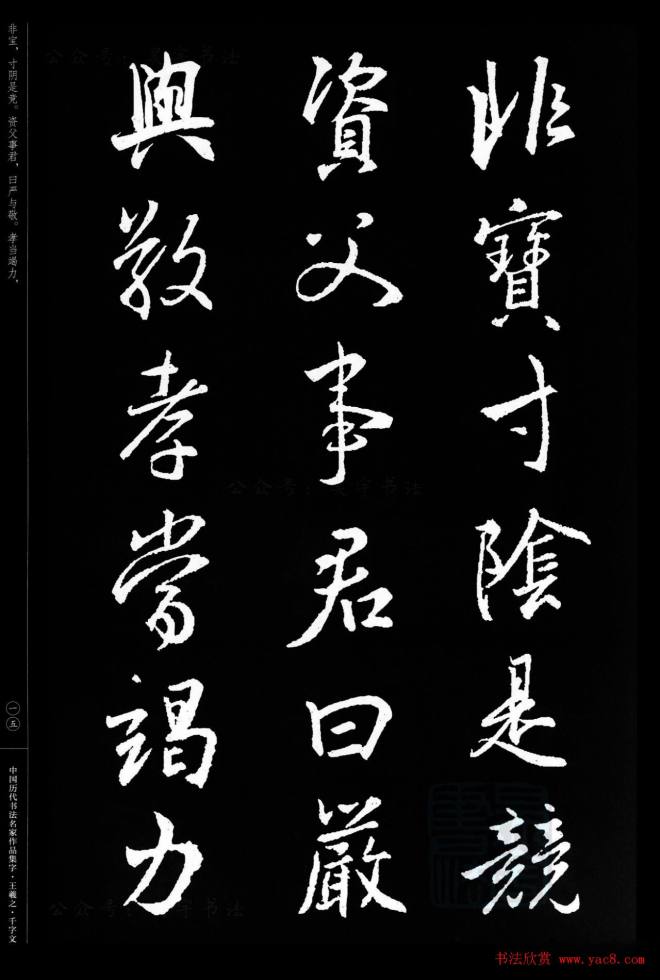 非寶寸陰是競
資父事君曰嚴
與敬孝當竭力
非宝，寸阴是竞。资父事君，曰严与敬。孝当竭力，
一五
中国历代书法名家作品集字·王羲之·千字文
书法欣赏 www.yac8.com